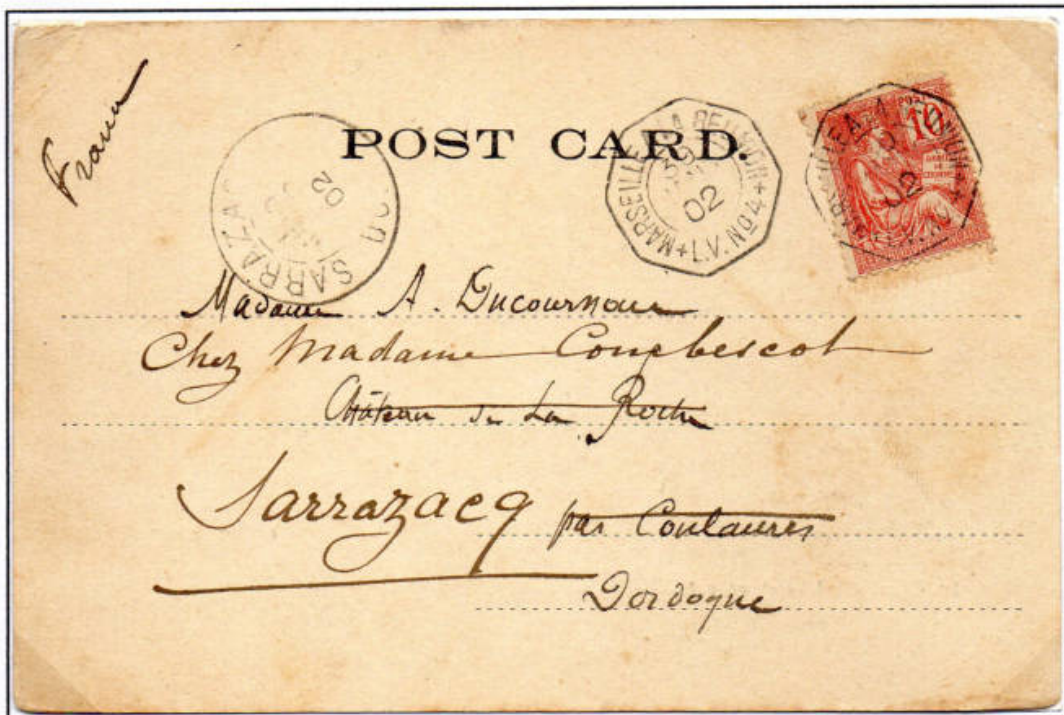 France
POST CARD.
SARRAZAC
02
MARSEILLE A LA REUNION
02
L.V. No 4
POST
10
02
Madame A. Ducournau
Chez Madame Combescot
Château de La Roche
Sarrazacq par Coulaures
Dordogne